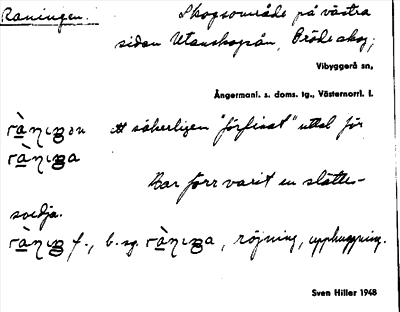 Raningen.
Skogsområde på västra
sidan Utanskogsån, Brödeskog;
Vibyggerå sn,
Ångermanl. s. doms. tg., Västernorrl. l.
ett säkerligen "förfinat" uttal för
Har förr varit en slåtter-
svedja.
f., b. sg. , röjning, upphuggning.
Sven Hiller 1948